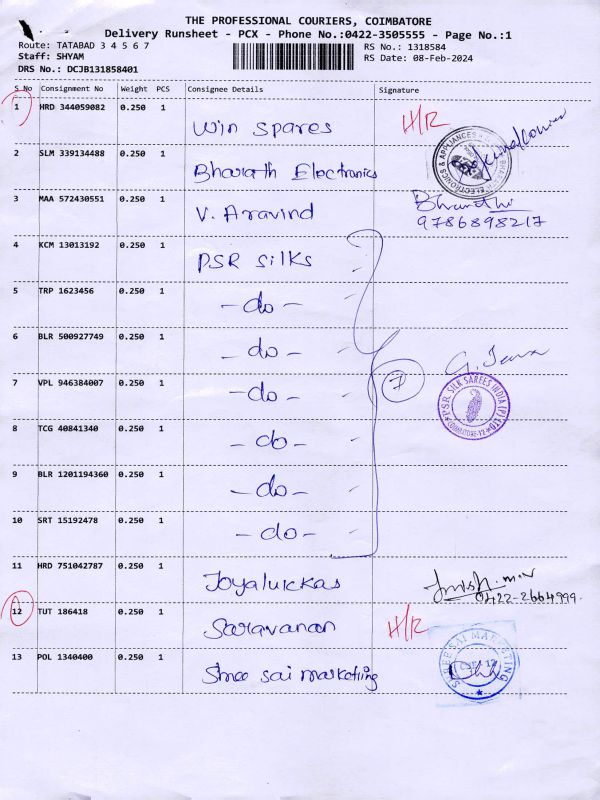 THE PROFESSIONAL COURIERS, COIMBATORE
Delivery Runsheet - PCX - Phone No.:0422-3505555 - Page No.:1
Route: TATABAD 3 4 5 6 7
RS No.: 1318584
Staff: SHYAM
RS Date: 08-Feb-2024
DRS No.: DCJB131858401
S No Consignment No Weight PCS Consignee Details Signature
1 HRD 344059082 0.250 1 Win Spares H/R
2 SLM 339134488 0.250 1 Bharath Electronics
3 MAA 572430551 0.250 1 V. Aravind
9786898217
4 KCM 13013192 0.250 1 PSR Silks
5 TRP 1623456 0.250 1 -do-
6 BLR 500927749 0.250 1 -do-
7 VPL 946384007 0.250 1 -do- 7
P.S.R. SILK SAREES INDIA (P) LTD
COIMBATORE-12
8 TCG 40841340 0.250 1 -do-
9 BLR 1201194360 0.250 1 -do-
10 SRT 15192478 0.250 1 -do-
11 HRD 751042787 0.250 1 Joyalukkas
0422-2664999.
12 TUT 186418 0.250 1 Saravanan H/R
13 POL 1340400 0.250 1 Shree sai marketing
SHREE SAI MARKETING